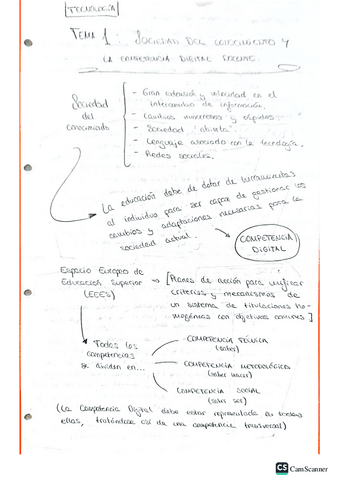 TECNOLOGÍA
TEMA 1: SOCIEDAD DEL CONOCIMIENTO Y
LA COMPETENCIA DIGITAL DOCENTE.
Sociedad del conocimiento
- Gran extensión y velocidad en el
intercambio de información.
- Cambios numerosos y rápidos.
- Sociedad "abierta".
- Lenguaje asociado con la tecnología.
- Redes sociales.
La educación debe de dotar de herramientas
al individuo para ser capaz de gestionar los
cambios y adaptaciones necesarias para la
sociedad actual.
COMPETENCIA
DIGITAL
Espacio Europeo de
Educación Superior
(EEES)
[Planes de acción para unificar
criterios y mecanismos de
un sistema de titulaciones ho-
mogéneas con objetivos comunes]
Todas las
competencias
se dividen en...
COMPETENCIA TÉCNICA
(saber)
COMPETENCIA METODOLÓGICA
(saber hacer)
COMPETENCIA SOCIAL
(saber ser)
(La Competencia Digital debe estar representada en todas
ellas, tratándose así de una competencia transversal)
CS CamScanner